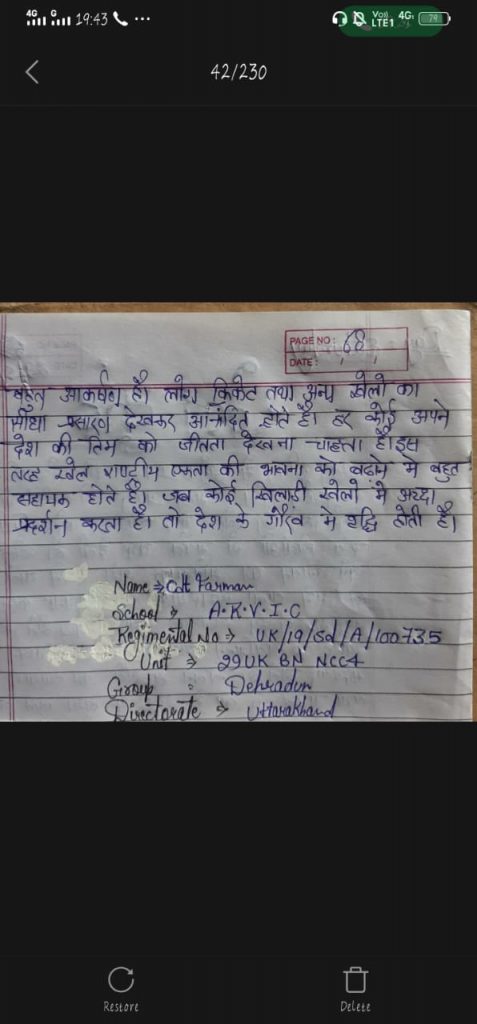 4G G 19:43 ...
Vo) LTE1 4G 79
42/230
PAGE NO: 68
DATE: / /
बहुत आकर्षण है। लोग क्रिकेट तथा अन्य खेलो का
सीधा प्रसारण देखकर आनंदित होते है। हर कोई अपने
देश की तिम को जीतता देखना चाहता है। इस
तरह खेल राष्टीय एकता की भावना को बढाने मे बहुत
सहायक होते है। जब कोई खिलाडी खेलो मे अच्छा
प्रदर्शन करता है। तो देश के गौरंव मे वृद्धि होती है।
Name → Cdt Farman
School → A.R.V.I.C
Regimental No → UK/19/Sd/A/100735
Unit → 29 UK BN NCC
Group : Dehradun
Directorate → Uttarakhand
Restore Delete